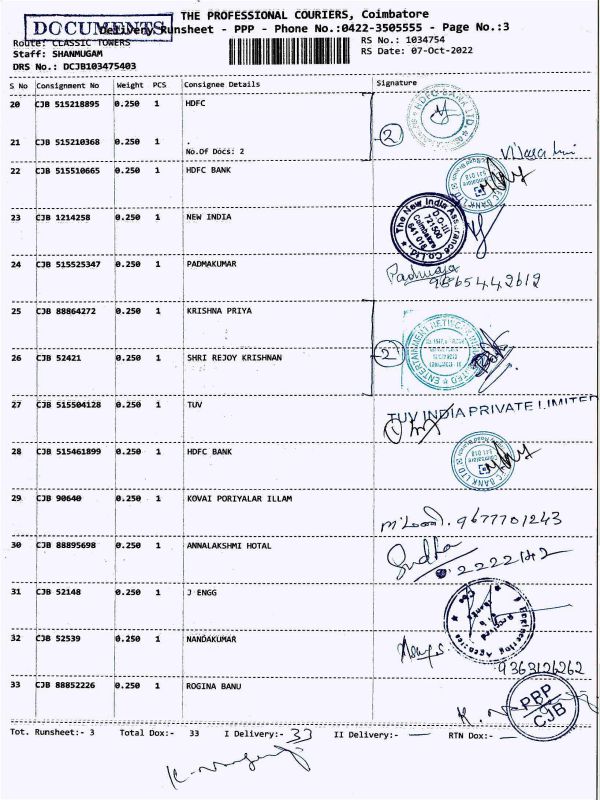 THE PROFESSIONAL COURIERS, Coimbatore
DOCUMENTS
Delivery Runsheet - PPP - Phone No.:0422-3505555 - Page No.:3
Route: CLASSIC TOWERS
RS No.: 1034754
Staff: SHANMUGAM
RS Date: 07-Oct-2022
DRS No.: DCJB103475403
S No Consignment No Weight PCS Consignee Details Signature
20 CJB 515218895 0.250 1 HDFC
HDFC BANK LTD
2
21 CJB 515210368 0.250 1 .
No.Of Docs: 2
22 CJB 515510665 0.250 1 HDFC BANK
BANK LTD
Coimbatore
641 018
23 CJB 1214258 0.250 1 NEW INDIA
The New India Assurance Co. Ltd.
D.O-III
721500
Coimbatore
641 018
24 CJB 515525347 0.250 1 PADMAKUMAR
Padmaja
9865442612
25 CJB 88864272 0.250 1 KRISHNA PRIYA
ENTERTAINMENT NETWORK
2
26 CJB 52421 0.250 1 SHRI REJOY KRISHNAN
27 CJB 515504128 0.250 1 TUV
TUV INDIA PRIVATE LIMITED
28 CJB 515461899 0.250 1 HDFC BANK
BANK LTD
Coimbatore
641 018
29 CJB 90640 0.250 1 KOVAI PORIYALAR ILLAM
9677701243
30 CJB 88895698 0.250 1 ANNALAKSHMI HOTAL
Sudha
2222142
31 CJB 52148 0.250 1 J ENGG
Engineering Agencies
32 CJB 52539 0.250 1 NANDAKUMAR
9363126262
33 CJB 88852226 0.250 1 ROGINA BANU
PBP
CJB
Tot. Runsheet:- 3 Total Dox:- 33 I Delivery:- 33 II Delivery:- — RTN Dox:- —